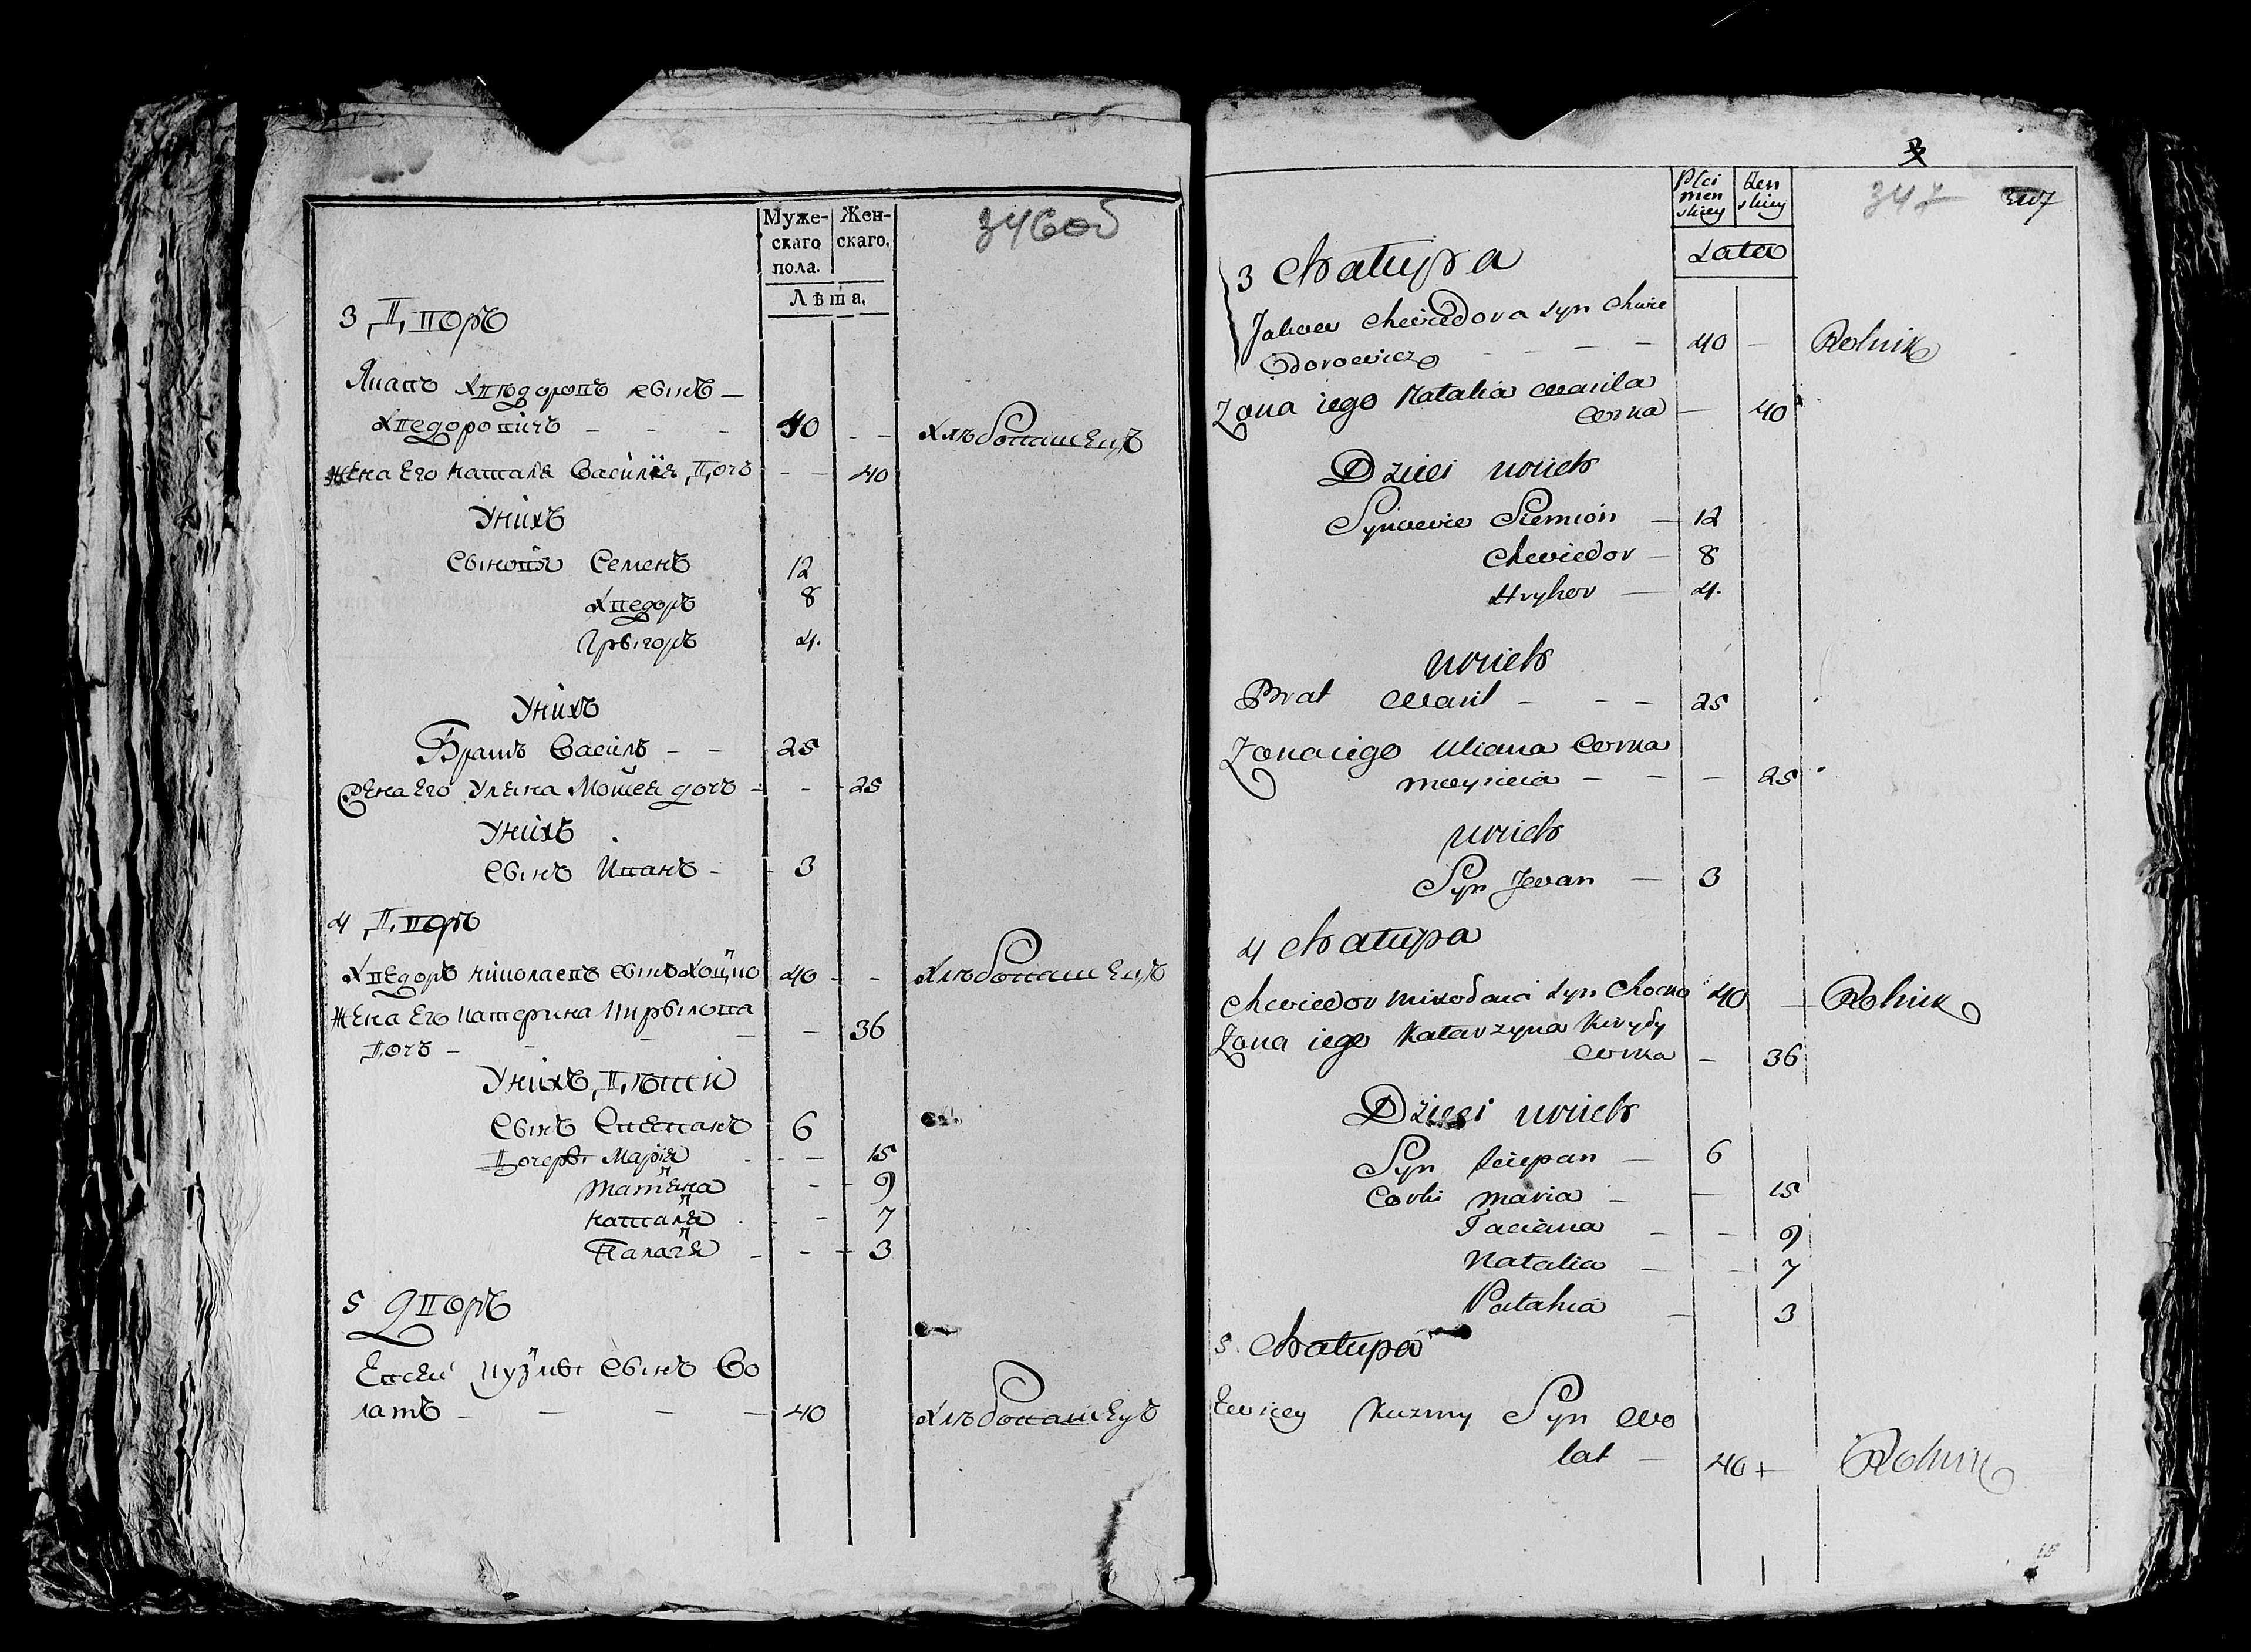 Муже-
скаго
пола.
Жен-
скаго.
Лѣта.
346об
3 Дворъ
Яковъ Хведоровъ сынъ —
Хведоровичъ - - - 40 - - хлѣбопашецъ
Жена Его наталя Василія Дочъ - - 40
Унихъ
Сыновя Семенъ 12
Хведоръ 8
Грыгоръ 4.
Унихъ
Братъ Василъ - - 25
Жена Его Уляна Мойсея дочъ - - 25
Унихъ
Сынъ Иванъ - - 3
4 Дворъ
Хведоръ николаевъ Сынъ Хоцко 40 - - хлѣбопашецъ
Жена Его Катерина Кирылова
Дочъ - - - - - 36
Унихъ Дѣти
Сынъ Степанъ 6
Дочери Марія - - 15
татяна - - 9
наталя - - 7
Палагя - - 3
5 Дворъ
Евсей Кузмы Сынъ Во
латъ - - - - 40 хлѣбопашецъ
Plci
men
skiey
Żen
skiey
Lata
347 347
3 Chatupa
Jakow Chwiedora syn Chwie
dorowicz - - - - 40 - Rolnik
Zona iego Natalia Wasila
Corka - 40
Dzieci unich
Synowie Siemion — 12
Chwiedor — 8
Hryhor — 4.
unich
Brat Wasil - - - 25
Zona iego Uliana Corka
Moysieia - - - 25
unich
Syn Jwan — 3
4 Chatupa
Chwiedor Mikołaia syn Chocko 40 - Rolnik
Zona iego Katarzyna Kiryły
Corka - 36
Dzieci unich
Syn Sciepan — 6
Corki Maria - - 15
Taciana - - 9
Natalia - - 7
Patahia - 3
5. Chatupa
Ewsiey Kuzmy Syn Wo
łat - 40 + Rolnik